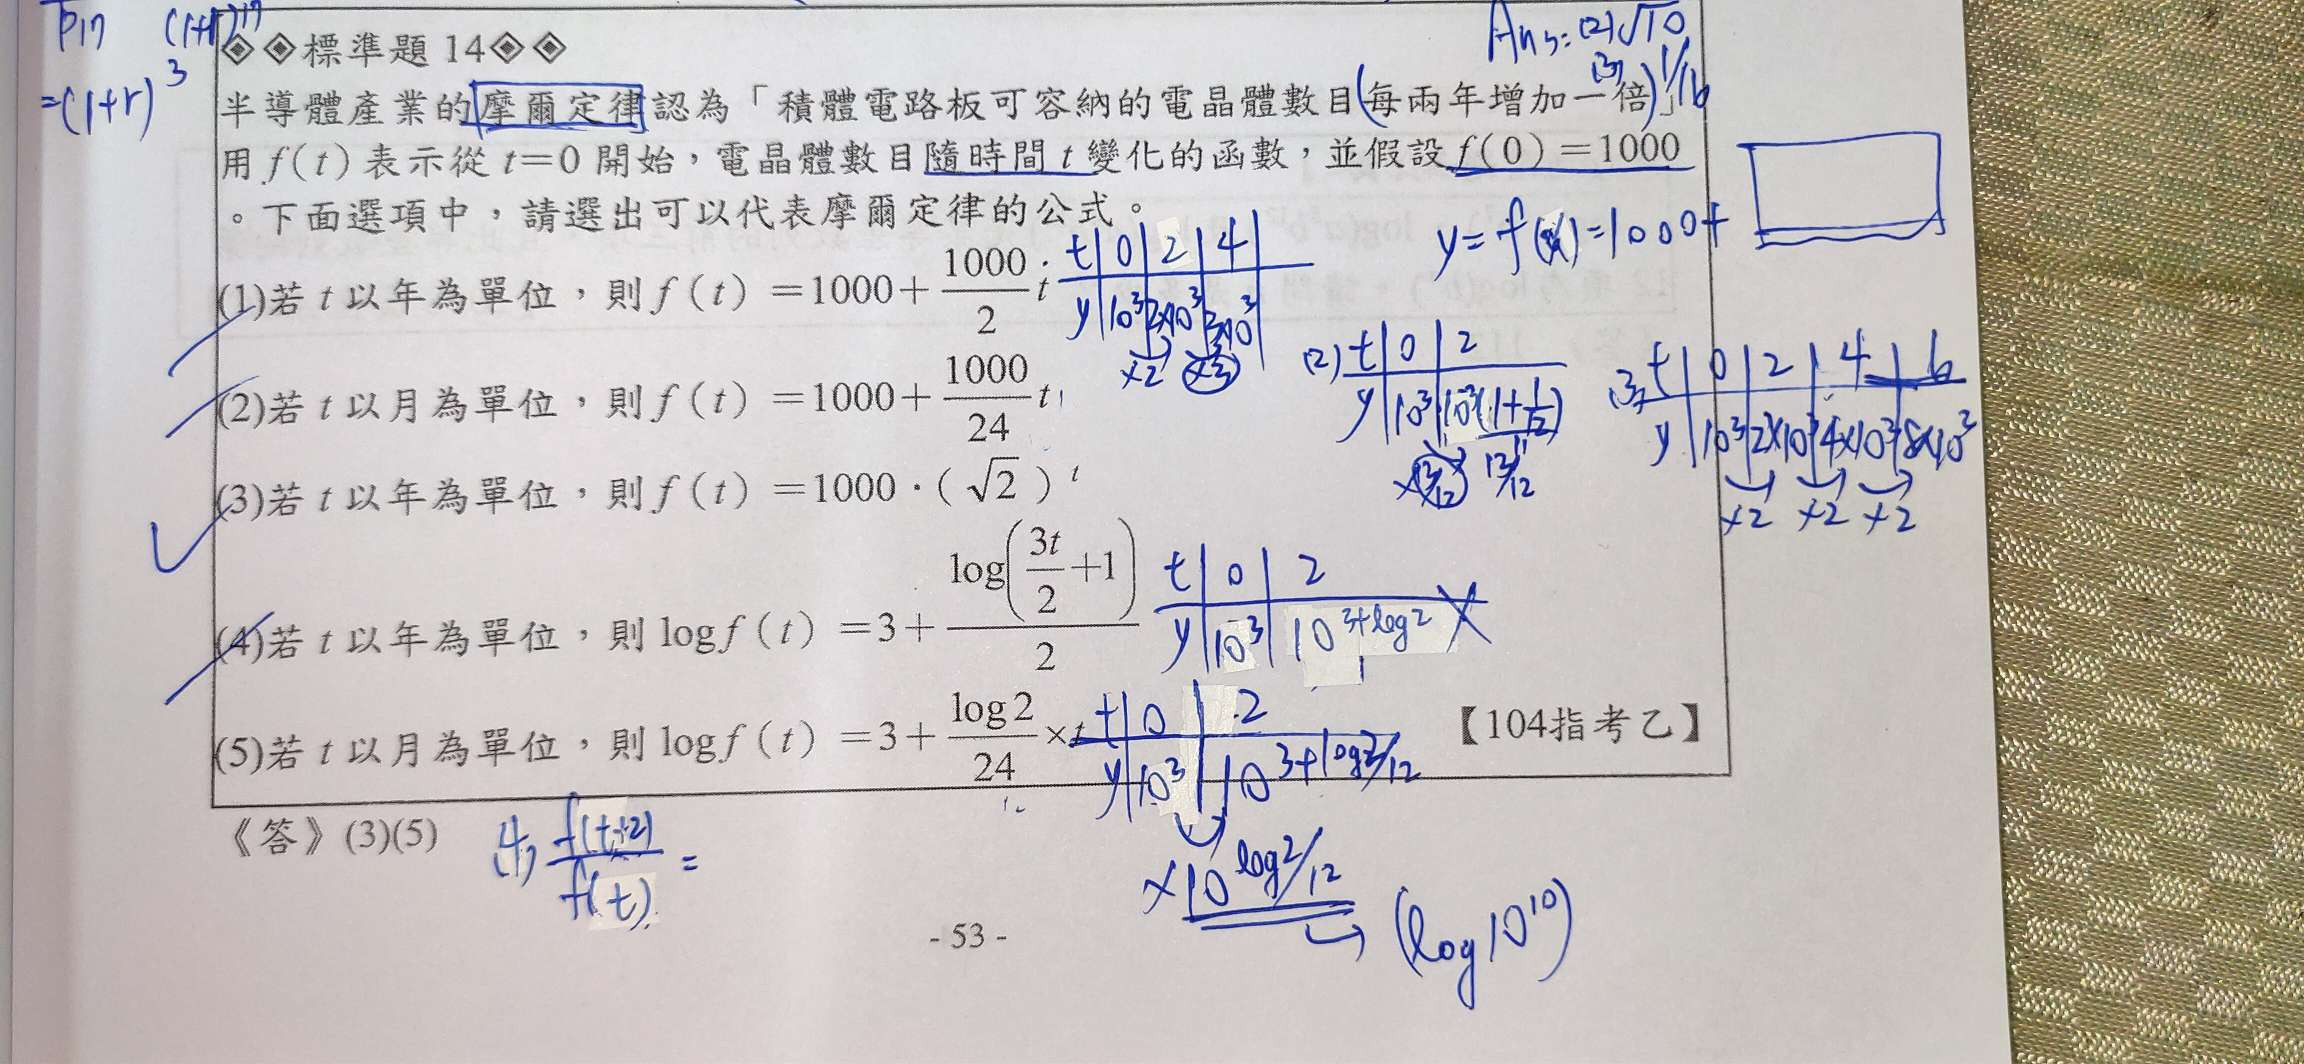 P17 (1+r)^17
=(1+r)^3
◈◈標準題 14◈◈
Ans: (2)√10
(3) 1/16
半導體產業的摩爾定律認為「積體電路板可容納的電晶體數目(每兩年增加一倍)」
用 f(t) 表示從 t=0 開始，電晶體數目隨時間 t 變化的函數，並假設 f(0)=1000
。下面選項中，請選出可以代表摩爾定律的公式。
y=f(x)=1000+
(1)若 t 以年為單位，則 f(t)=1000+\frac{1000}{2}t
t 0 2 4
y 10^3 2×10^3 3×10^3
×2
(2)若 t 以月為單位，則 f(t)=1000+\frac{1000}{24}t
(2) t 0 2
y 10^3 10^3(1+1/12)
×13/12 13/12
(3) t 0 2 4 6
y 10^3 2×10^3 4×10^3 8×10^3
×2 ×2 ×2
(3)若 t 以年為單位，則 f(t)=1000·(√2)^t
(4)若 t 以年為單位，則 logf(t)=3+\frac{log(\frac{3t}{2}+1)}{2}
t 0 2
y 10^3 10^{3+log2} ×
(5)若 t 以月為單位，則 logf(t)=3+\frac{log2}{24}×t
t 0 2
y 10^3 10^{3+log2/12}
【104指考乙】
×10^{log2/12}
(log10^10)
《答》(3)(5)
(4) \frac{f(t+2)}{f(t)} =
- 53 -